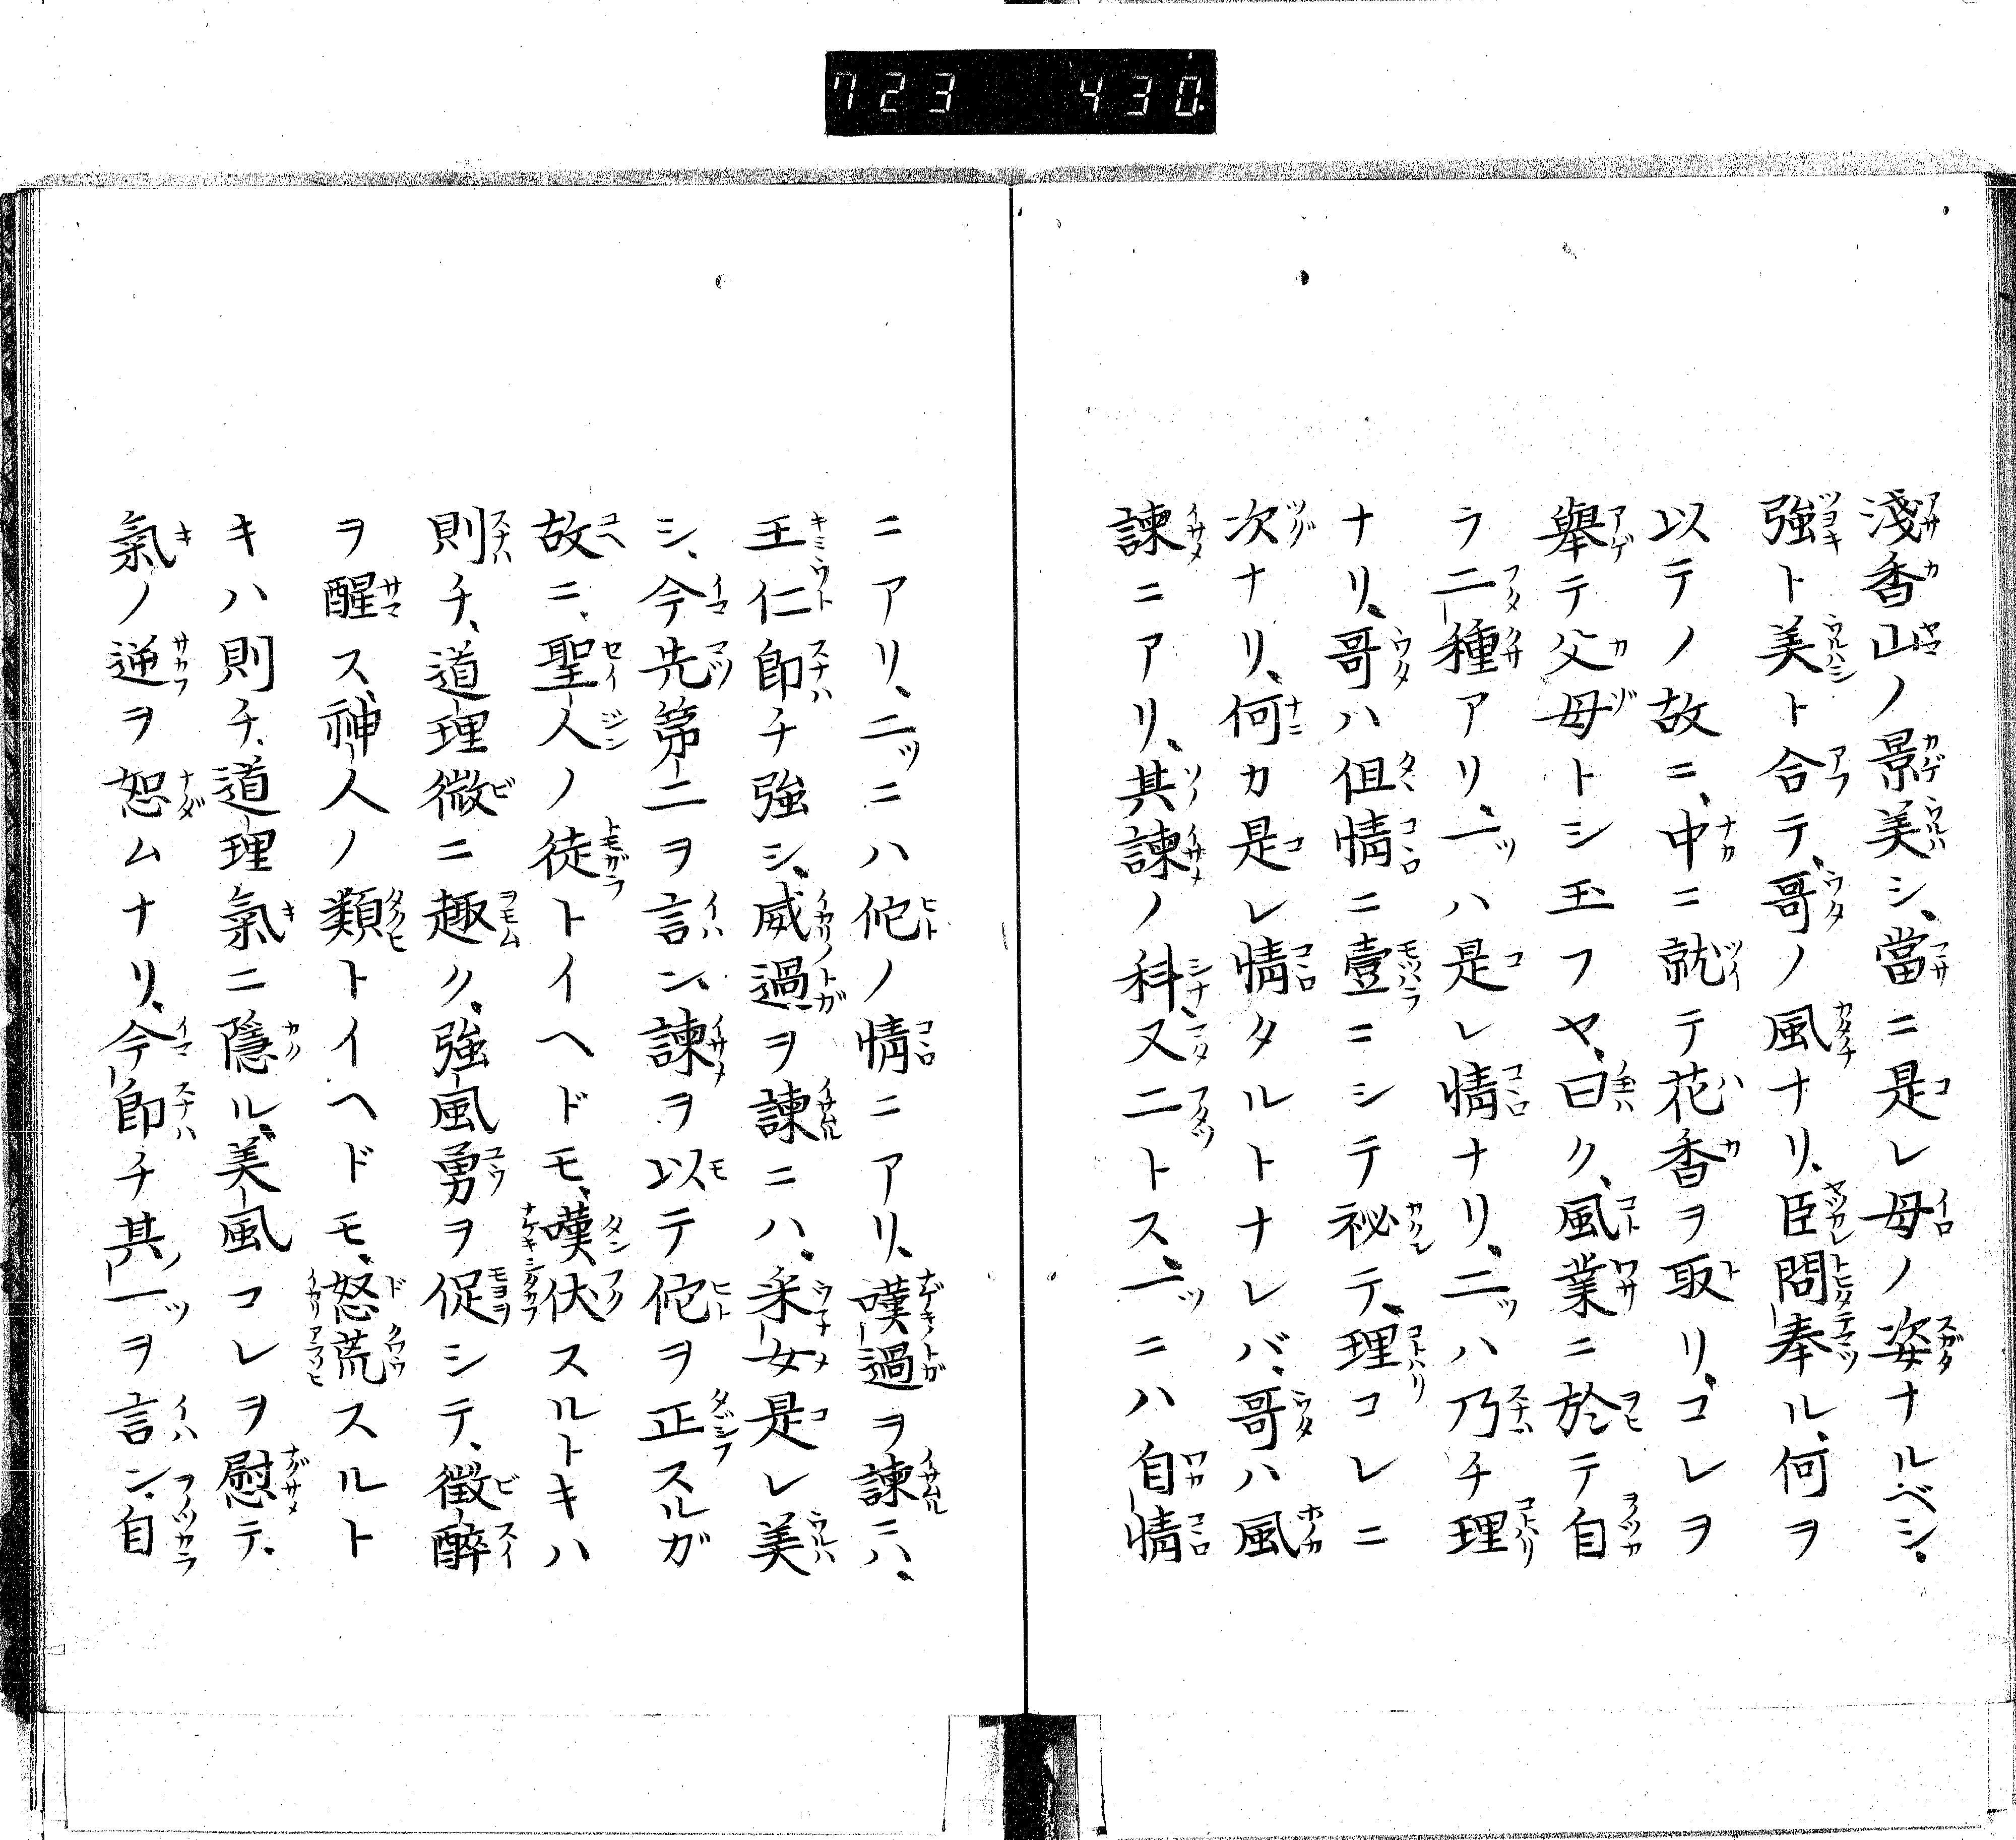 723 430
淺香山ノ景美シ、當ニ是レ母ノ姿ナルベシ、
強ト美ト合テ、哥ノ風ナリ、臣問奉ル、何ヲ
以テノ故ニ、中ニ就テ花香ヲ取リ、コレヲ
舉テ父母トシ玉フヤ、曰ク、風業ニ於テ自
ラ二種アリ、一ツハ是レ情ナリ、二ツハ乃チ理
ナリ、哥ハ但情ニ壹ニシテ祕テ、理コレニ
次ナリ、何カ是レ情タルトナレバ、哥ハ風
諫ニアリ、其諫ノ科、又二トス、一ツニハ自情
ニアリ、二ツニハ佗ノ情ニアリ、嘆過ヲ諫ニハ、
王仁即チ強シ、威過ヲ諫ニハ、采女是レ美
シ、今先第二ヲ言ン、諫ヲ以テ佗ヲ正スルガ
故ニ、聖人ノ徒トイヘドモ、嘆伏スルトキハ
則チ、道理微ニ趣ク、強風勇ヲ促シテ、微醉
ヲ醒ス、神人ノ類トイヘドモ、怒荒スルト
キハ則チ、道理氣ニ隱ル、美風コレヲ慰テ、
氣ノ逆ヲ恕ムナリ、今即チ其一ツヲ言ン、自